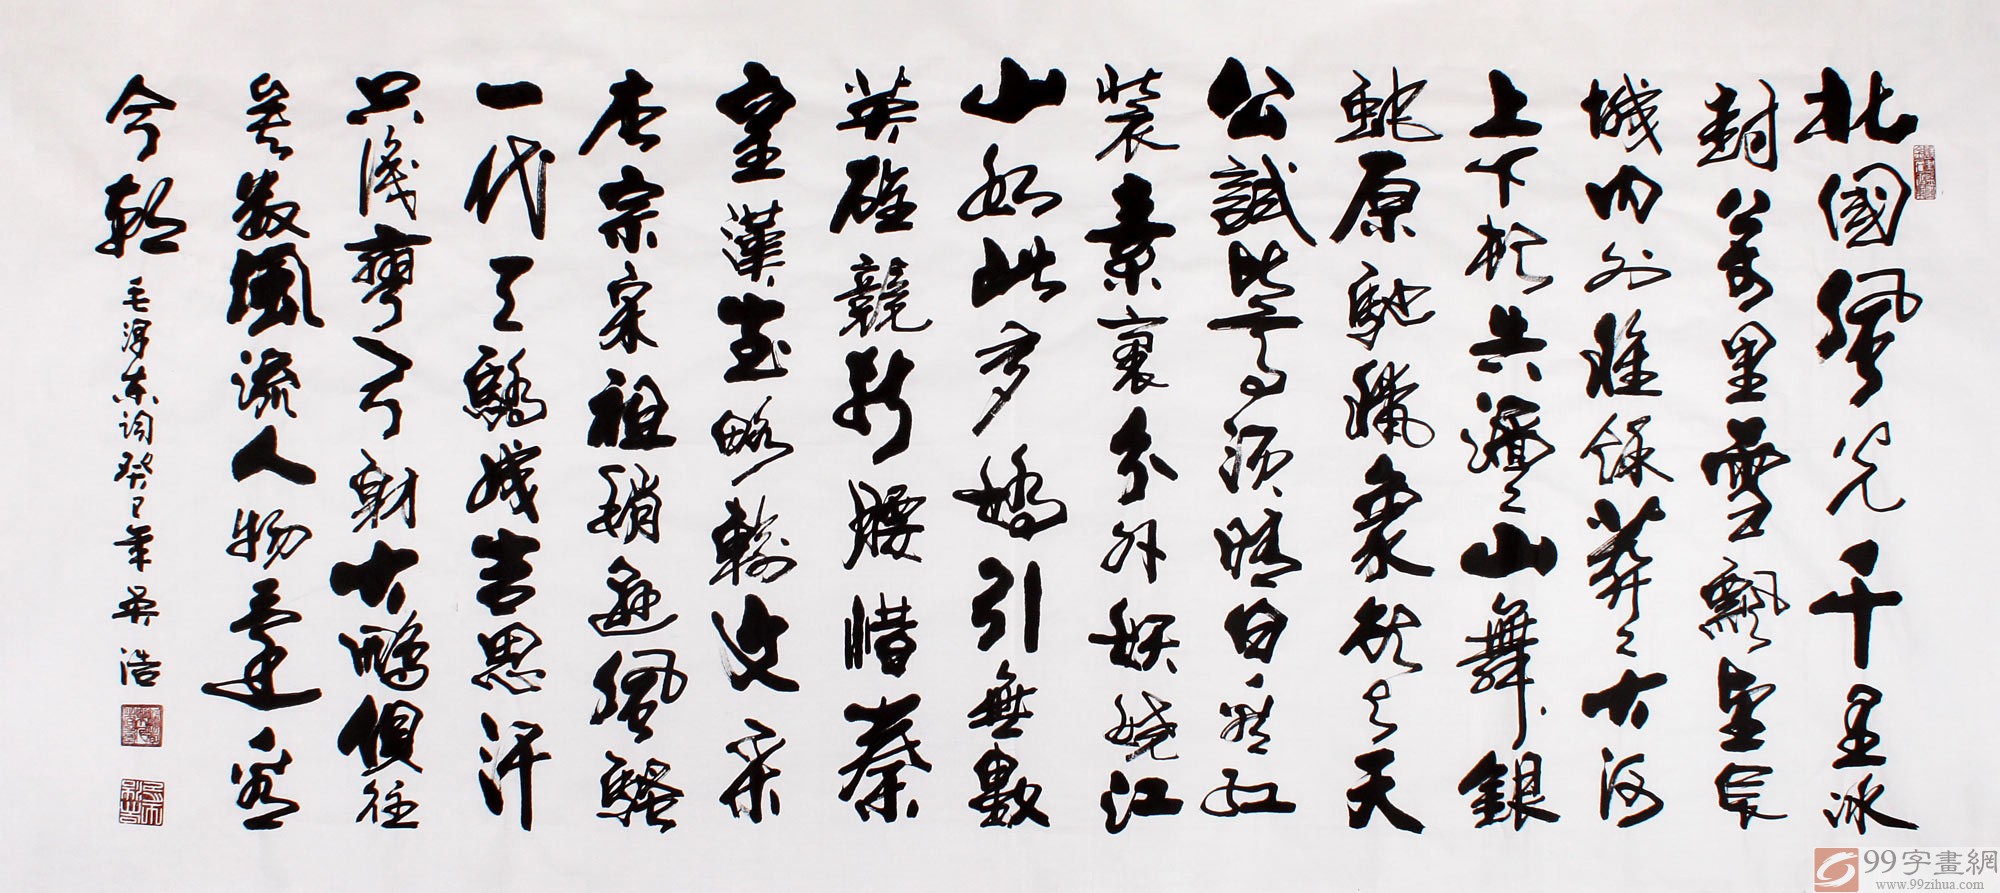 北國風光千里冰
封萬里雪飄望長
城内外惟餘莽〻大河
上下頓失滔〻山舞銀
蛇原馳臘象欲與天
公試比高須晴日看紅
裝素裹分外妖嬈江
山如此多嬌引無數
英雄競折腰惜秦
皇漢武略輸文采
唐宗宋祖稍遜風騷
一代天驕成吉思汗
只識彎弓射大鵰俱往
矣數風流人物還看
今朝
毛澤東詞癸巳年吳浩
99字畫網
www.99zihua.com